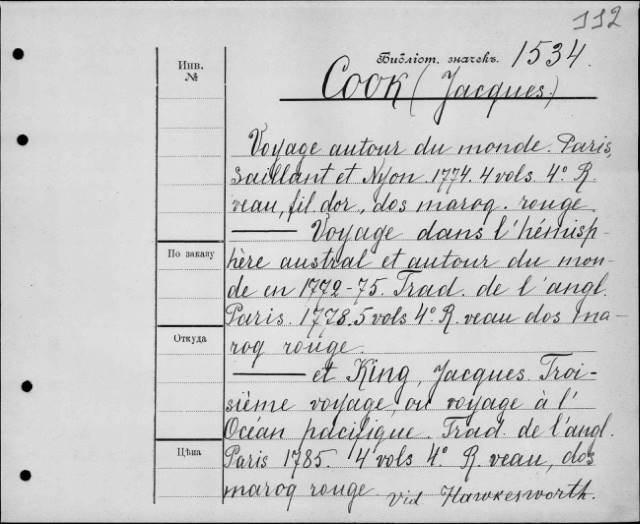 112
Инв.
№
Библіот. значекъ. 1534.
Cook (Jacques.)
Voyage autour du monde. Paris,
Saillant et Nyon. 1774. 4 vols. 4º. R.
veau, fil dor., dos maroq. rouge.
—— Voyage dans l'hémisp-
По заказу
hère austral et autour du mon-
de en 1772-75. Trad. de l'angl.
Paris. 1778. 5 vols 4º. R. veau dos ma-
Откуда
roq rouge.
—— et King, Jacques. Troi-
sième voyage, ou voyage à l'
Océan pacifique. Trad. de l'angl.
Цѣна
Paris 1785. 4 vols 4º. R. veau, dos
maroq rouge. vid Hawkesworth.